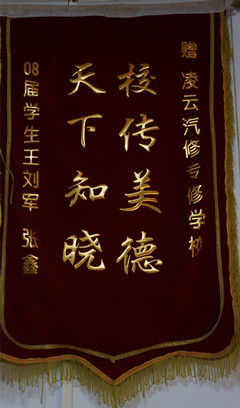 赠 凌云汽修专修学校
校传美德
天下知晓
08届学生王刘军 张鑫